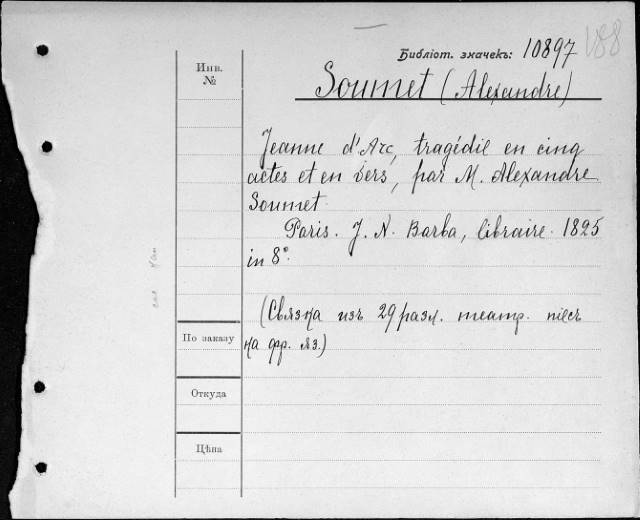 188
Библіот. значекъ: 10897
Инв.
№
Soumet (Alexandre)
Jeanne d'Arc, tragédie en cinq
actes et en vers, par M. Alexandre
Soumet.
Paris. J. N. Barba, libraire. 1825
in 8°.
(Связка изъ 29 разл. театр. піесъ
на фр. яз.)
По заказу
Откуда
Цѣна